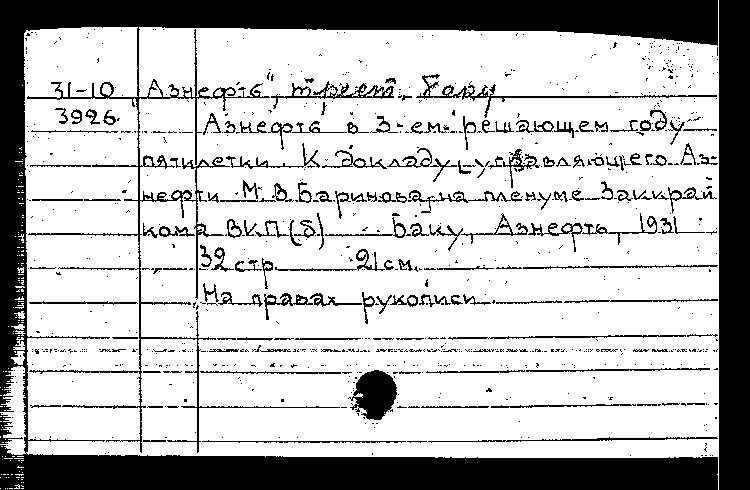 31-10 „Азнефть", трест, Баку.
3926. Азнефть в 3-ем решающем году
пятилетки. К докладу [управляющего Аз-
нефти М.В. Баринова] на пленуме Заккрай
кома ВКП(б) - Баку, Азнефть, 1931
32 стр. 21 см.
На правах рукописи.